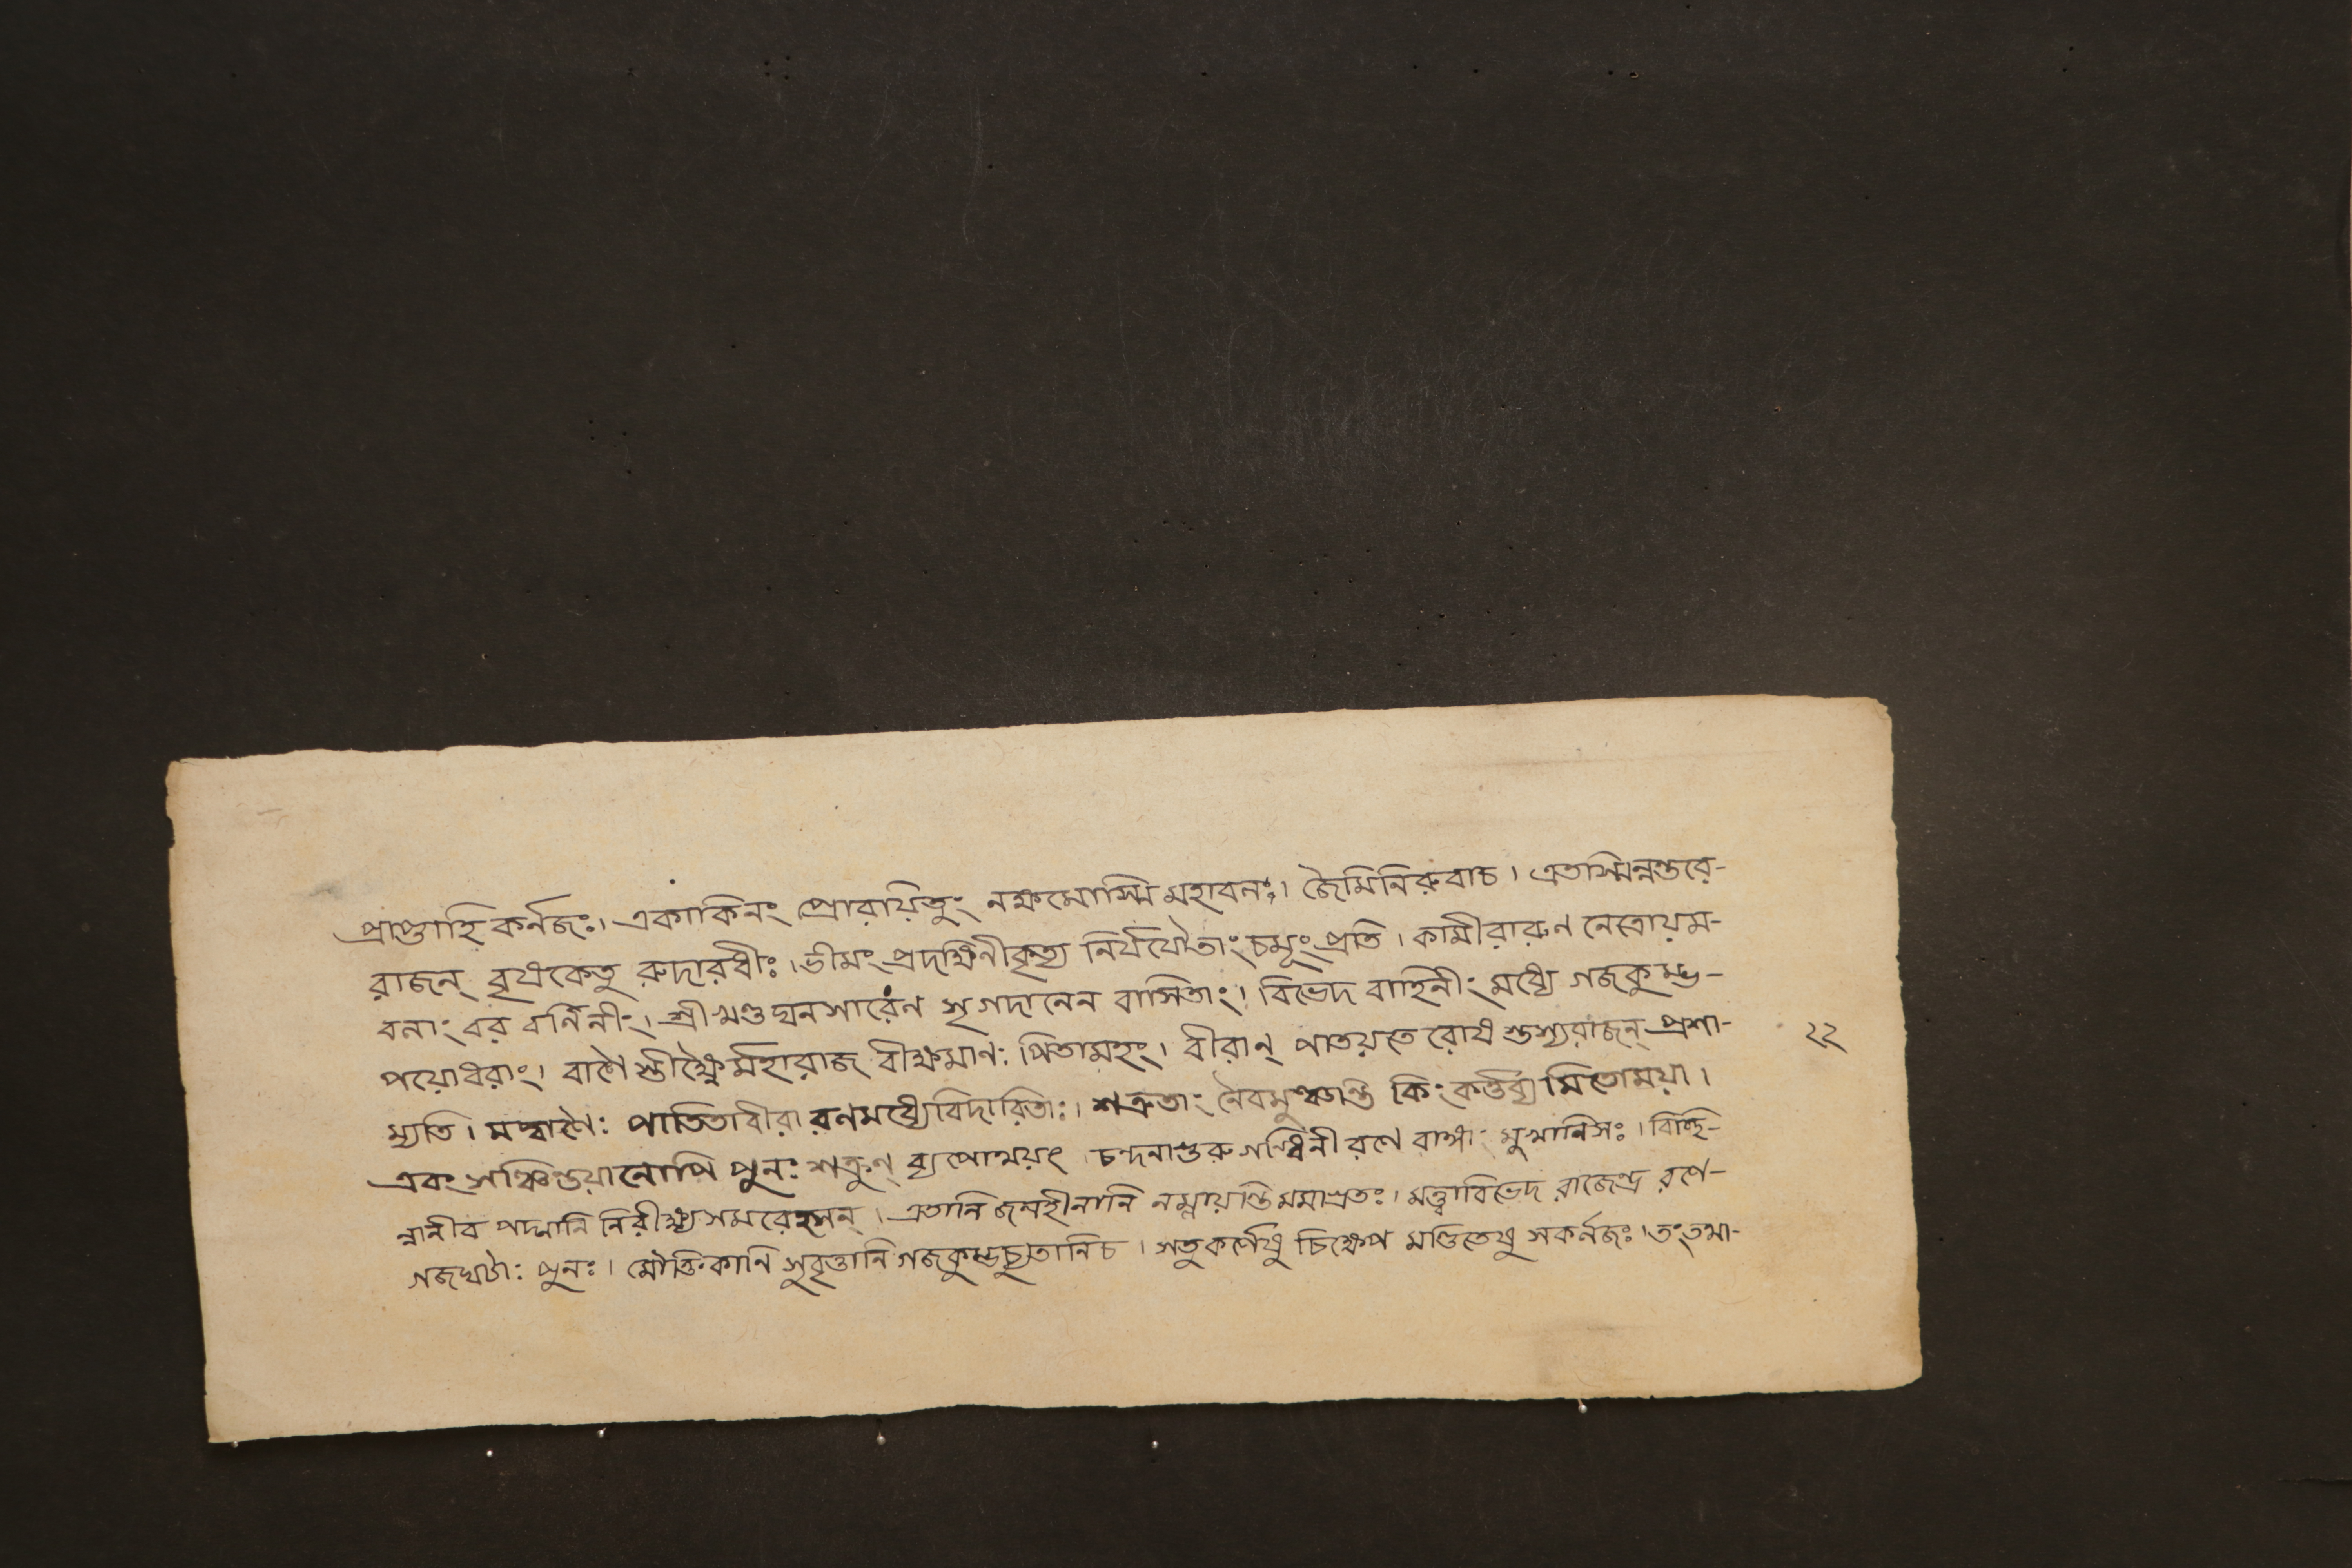 প্রাপ্তাহি কর্নজঃ। একাকিনং প্রোবায়িতুং নক্ষমোস্মি মহাবনঃ। জৈমিনিরুবাচ। এতস্মিন্নন্তরে-
রাজন্ বৃষকেতু রুদারধীঃ। ভীমং প্রদক্ষিনীকৃত্য নির্যযৌতাং চমূং প্রতি। কামীরারুণ নেত্রোয়ম-
বনাং বর বর্নিনীং। শ্রীখণ্ডঘনসারেণ মৃগদানেন বাসিতাং। বিভেদ বাহিনীং মধ্যে গজকুম্ভ-
পয়োধরাং। বাণৈ স্তীক্ষ্ণৈর্মহারাজ বীক্ষমাণঃ পিতামহং। বীরান্ পাতয়তে রোষ স্তস্যরাজন্ প্রশা- ২২
ম্যতি। মদ্বাণৈঃ পাতিতাবীরা রণমধ্যেবিদারিতাঃ। শত্রুতাং নৈবমুঞ্চন্তি কিং কর্ত্তব্য মিতোময়া।
এবং সঞ্চিন্তয়ানোপি পুনঃ শত্রুণ্ ব্যপোথয়ং। চন্দনাগুরু গন্ধিনী রণে রাজ্ঞাং মুখানিসঃ। বিচ্ছি-
ন্নানীব পদ্মানি নিরীক্ষ্য সমরেহসন্। এতানি জলহীনানি নম্লায়ন্তি মমাগ্রতঃ। মত্ত্বাবিভেদ রাজেন্দ্র রণে-
গজঘটাঃ পুনঃ। মৌক্তিকানি সুবৃত্তানি গজকুম্ভচ্যুতানিচ। সতুকর্ণেষু চিক্ষেপ মণ্ডিতেষু সকর্নজঃ। তং তমা-